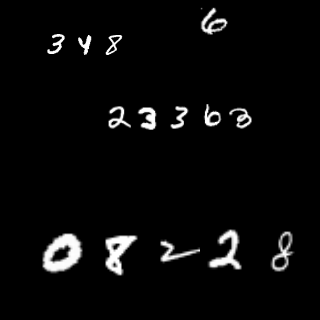 6
348
23363
08228